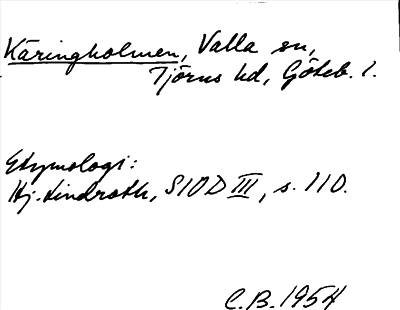 Käringholmen, Valla sn,
Tjörns hd, Göteb. l.
Etymologi:
Hj. Lindroth, SIOD III, s. 110.
C.B. 1954